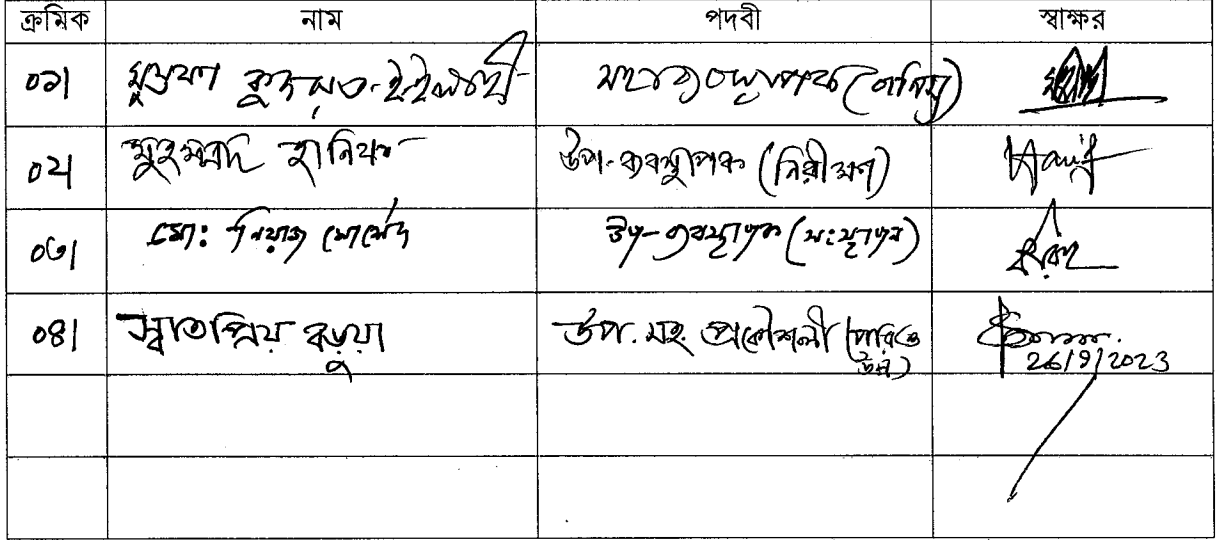 ক্রমিক নাম পদবী স্বাক্ষর
০১। মুস্তফা কুদরত-ই-ইলাহী মহাব্যবস্থাপক (বানিজ্য)
০২। মুহম্মাদ হানিফ উপ-ব্যবস্থাপক (নিরীক্ষণ) Hanif
০৩। মো: নিয়াজ মোর্শেদ উপ-ব্যবস্থাপক (সংস্থাপন)
০৪। স্বাতপ্রিয় বড়ুয়া উপ. মহা. প্রকৌশলী
26/9/2023